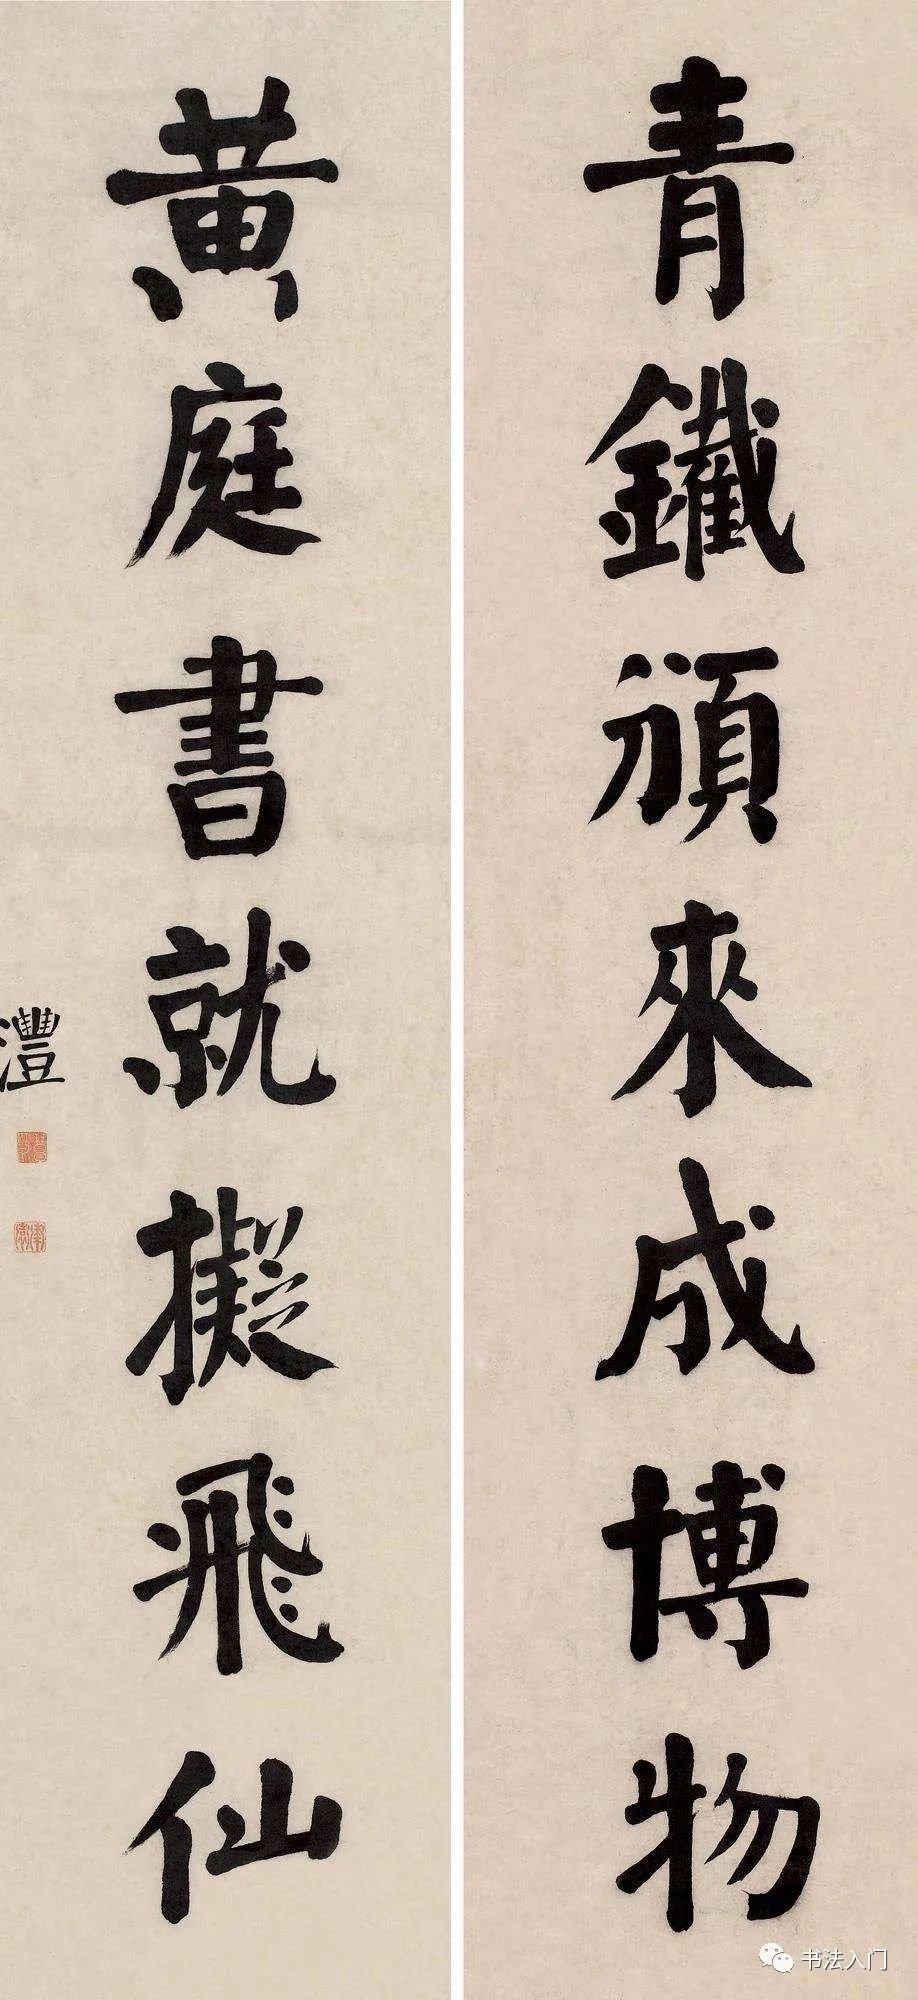 青鐵頒來成博物
黃庭書就擬飛仙
灃
书法入门